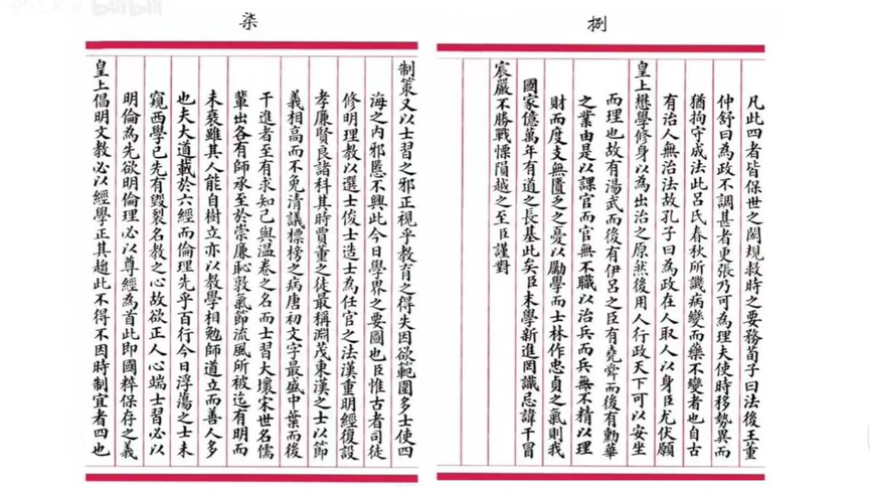 柒
制策又以士習之邪正視乎教育之得失因欲範圍多士使四
海之内邪慝不興此今日學界之要圖也臣惟古者司徒
修明理教以選士俊士造士為任官之法漢重明經復設
孝廉賢良諸科其時賈董之徒最稱淵茂東漢之士以節
義相高而不免清議標榜之病唐初文字最盛中葉而後
干進者至有求知己與溫卷之名而士習大壞宋世名儒
輩出各有師承至於崇廉恥敦氣節流風所被迄有明而
未衰雖其人能自樹立亦以教學相勉師道立而善人多
也夫大道載於六經而倫理先乎百行今日浮蕩之士未
窺西學已先有毀裂名教之心故欲正人心端士習必以
明倫為先欲明倫理必以尊經為首此即國粹保存之義
皇上倡明文教必以經學正其趨此不得不因時制宜者四也
捌
凡此四者皆保世之閎規救時之要務荀子曰法後王董
仲舒曰為政不調甚者更張乃可為理夫使時移勢異而
猶拘守成法此呂氏春秋所譏病變而藥不變者也自古
有治人無治法故孔子曰為政在人取人以身臣尤伏願
皇上懋學修身以為出治之原然後用人行政天下可以安坐
而理也故有湯武而後有伊呂之臣有堯舜而後有勳華
之業由是以課官而官無不職以治兵而兵無不精以理
財而度支無匱乏之憂以勵學而士林作忠貞之氣則我
國家億萬年有道之長基此矣臣末學新進罔識忌諱干冒
宸嚴不勝戰慄隕越之至臣謹對
bilibili